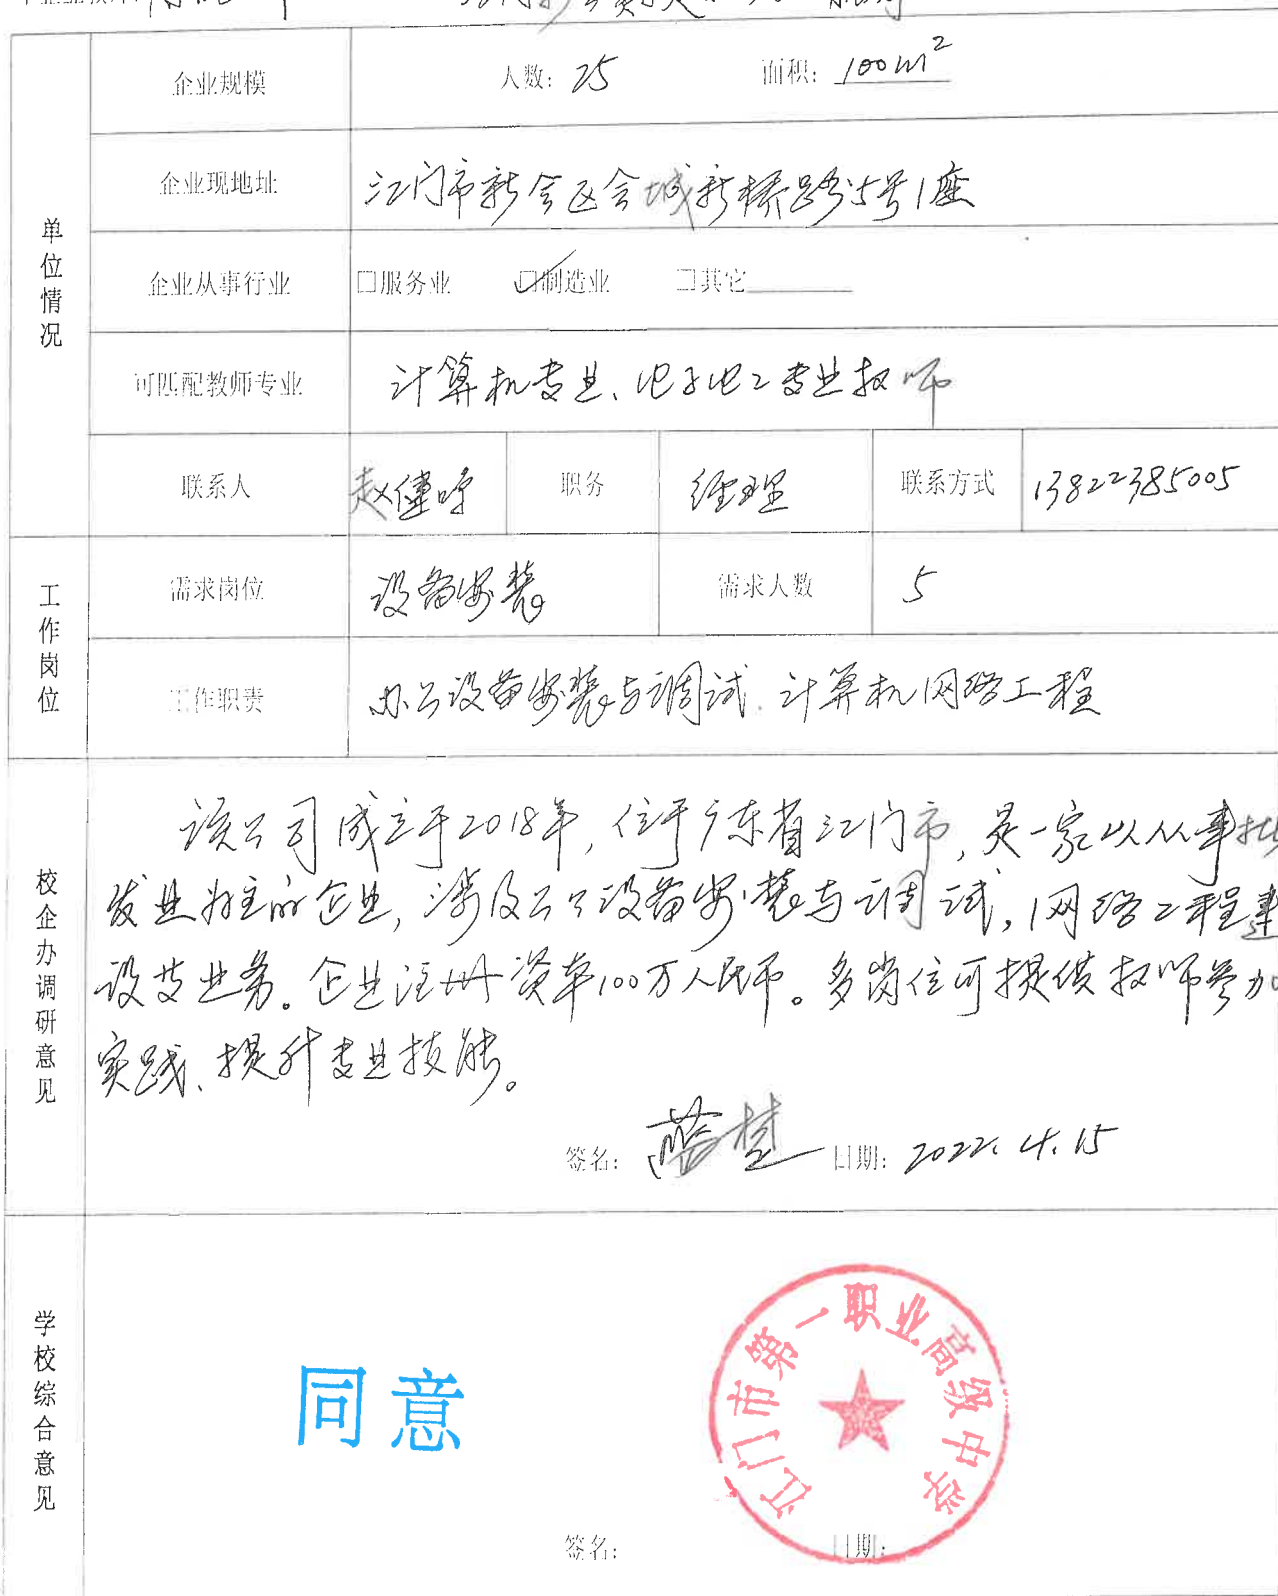 企业规模 人数: 25 面积: 100m²
企业现地址 江门市新会区会城新桥路15号1座
企业从事行业 □服务业 ☑制造业 □其它
可匹配教师专业 计算机专业、电子电工专业教师
联系人 赵健 职务 经理 联系方式 13822385005
单位情况
需求岗位 设备安装 需求人数 5
工作职责 办公设备安装与调试、计算机网络工程
工作岗位
该公司成立于2018年,位于广东省江门市,是一家以从事批
发业为主的企业,涉及办公设备安装与调试,网络工程建
设等业务。企业注册资本100万人民币。多岗位可提供教师参加
实践、提升专业技能。
校企办调研意见
签名: 日期: 2022.4.15
同意
江门市第一职业高级中学
学校综合意见
签名: 日期: